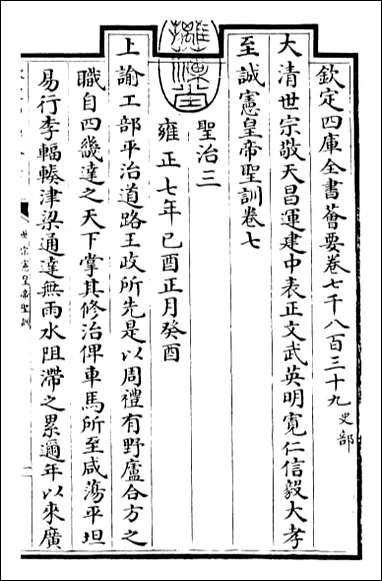 欽定四庫全書薈要卷七千八百三十九 史部
大清世宗敬天昌運建中表正文武英明寛仁信毅大孝
至誠憲皇帝聖訓卷七
聖治三
雍正七年己酉正月癸酉
上諭工部平治道路王政所先是以周禮有野廬合方之
職自四畿達之天下掌其修治俾車馬所至咸蕩平坦
易行李輻輳津梁通達無雨水阻滯之累邇年以來廣
世宗憲皇帝聖訓
一
摛藻堂